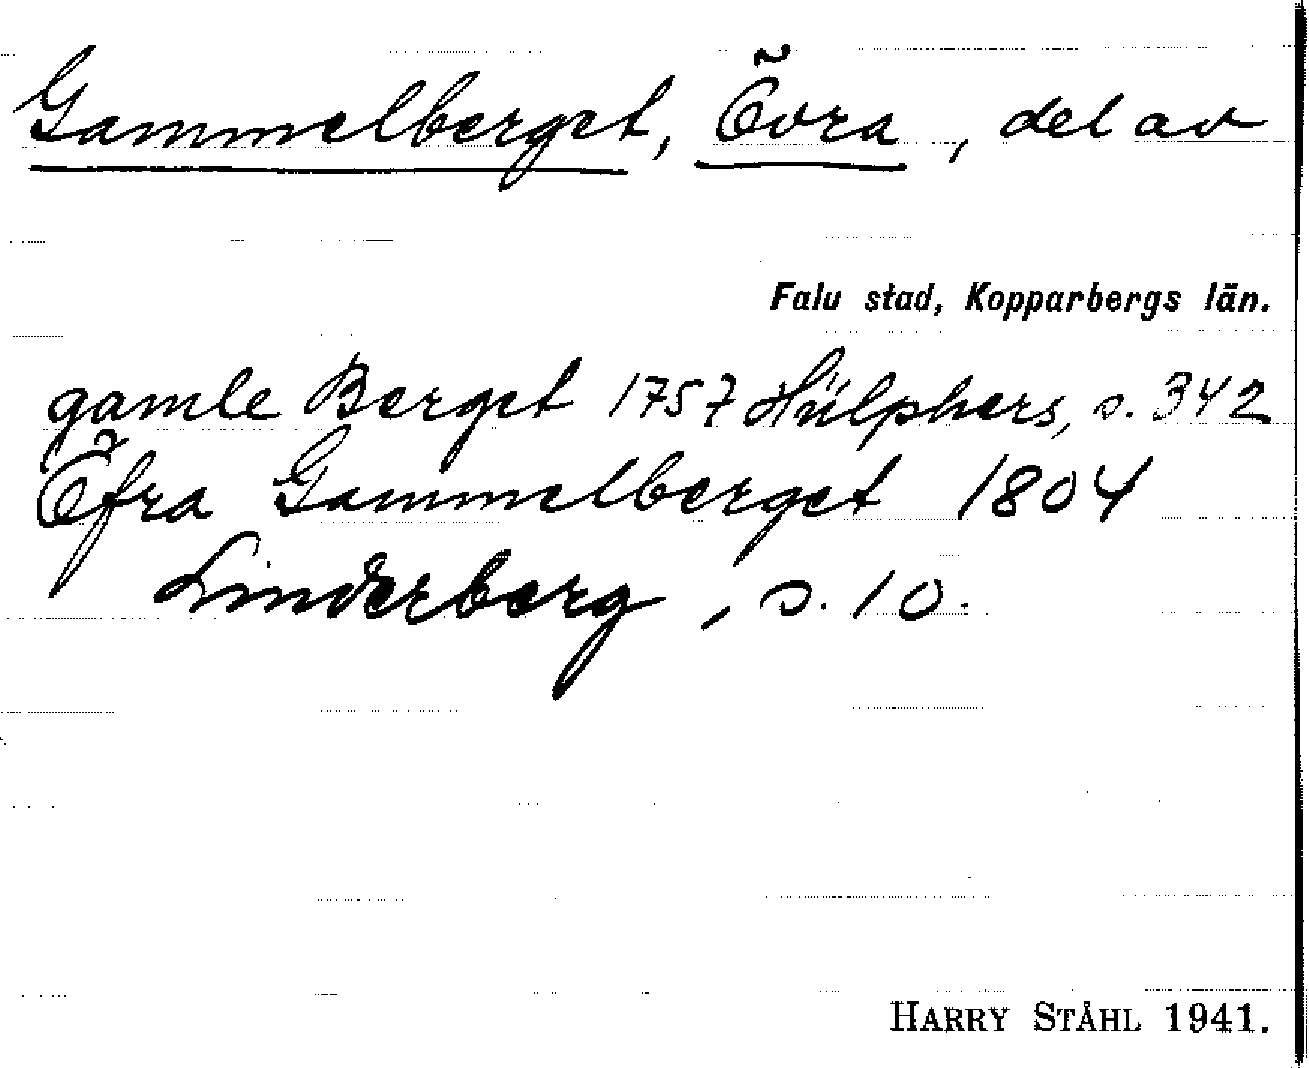 Gammelberget, Övra, del av
Falu stad, Kopparbergs län.
gamle Berget 1757 Hülphers, s. 342
Öfra Gammelberget 1804
Linderberg, s. 10.
HARRY STÅHL 1941.